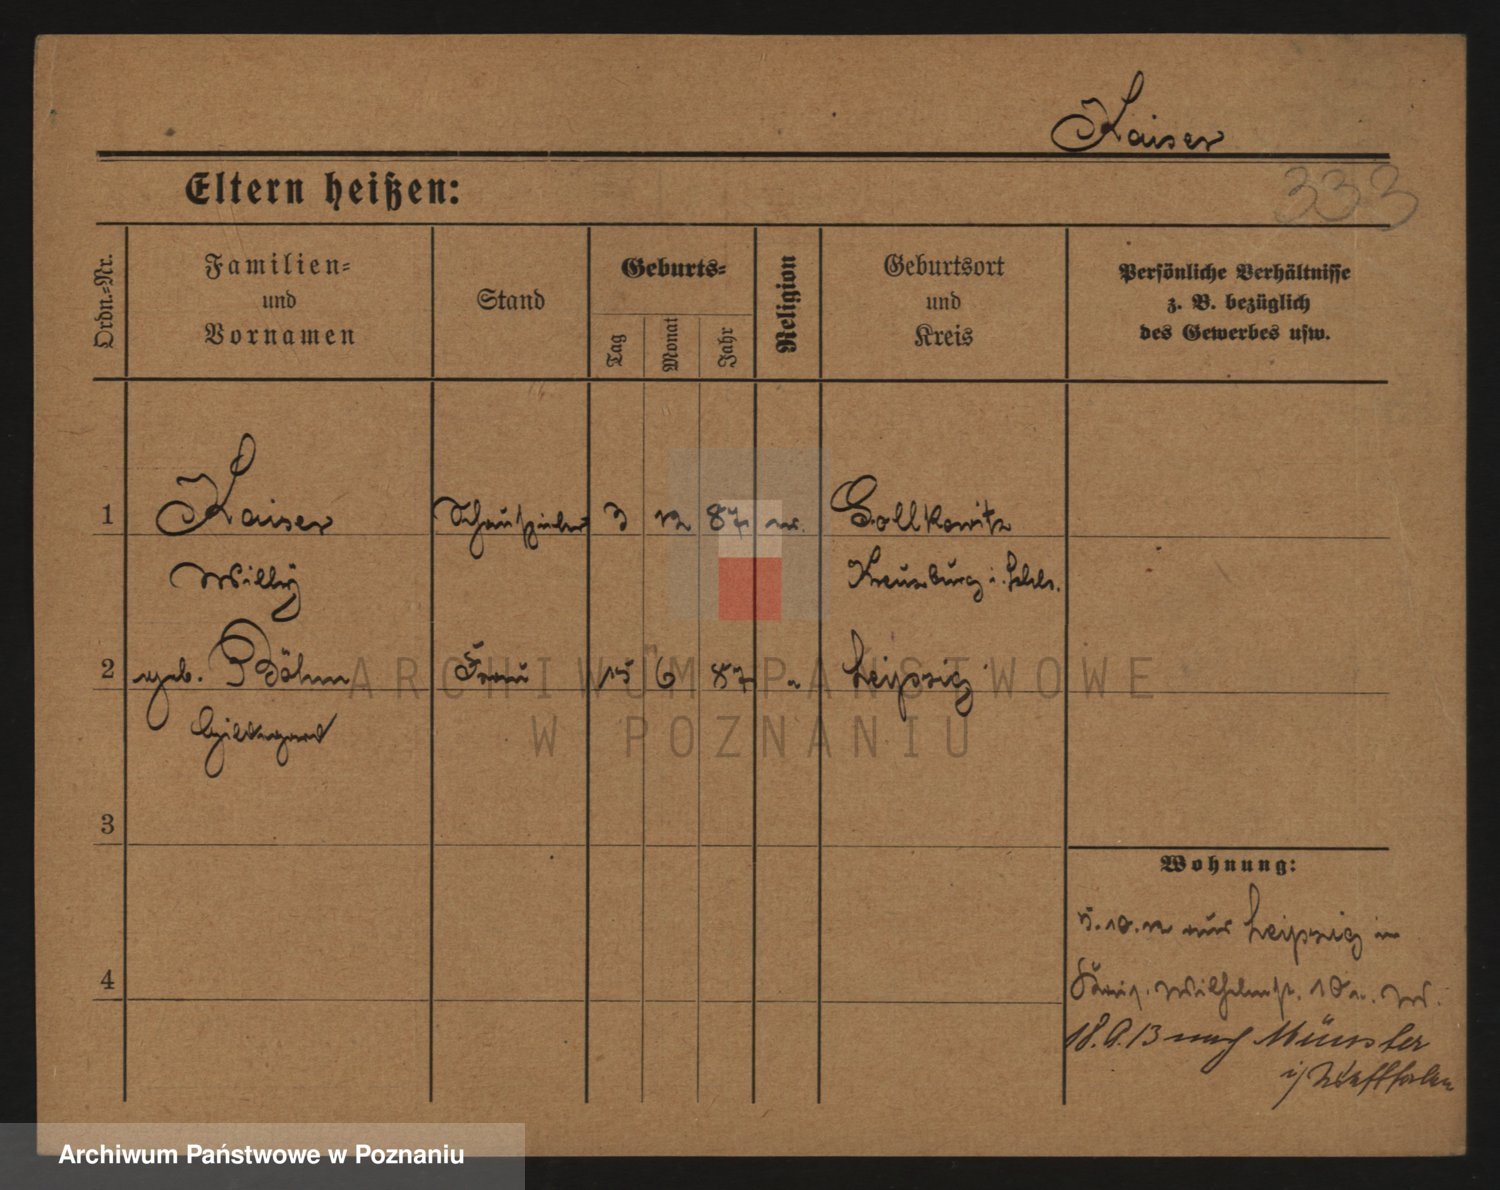 Kaiser
Eltern heißen:
333
Ordn.=Nr.
Familien=
und
Vornamen
Stand
Geburts=
Tag
Monat
Jahr
Religion
Geburtsort
und
Kreis
Persönliche Verhältnisse
z. B. bezüglich
des Gewerbes usw.
1
Kaiser
Schauspieler
3
12
87
Gollkowitz
Willy
Kreuzburg i. Schls.
2
geb. Böhm
Frau
15
6
87
"
Leipzig
Hildegard
3
4
Wohnung:
5.10.12 aus Leipzig in
Wilhelmstr. 10
18.9.13 nach Münster
i/Westfalen
ARCHIWUM PAŃSTWOWE
W POZNANIU
Archiwum Państwowe w Poznaniu